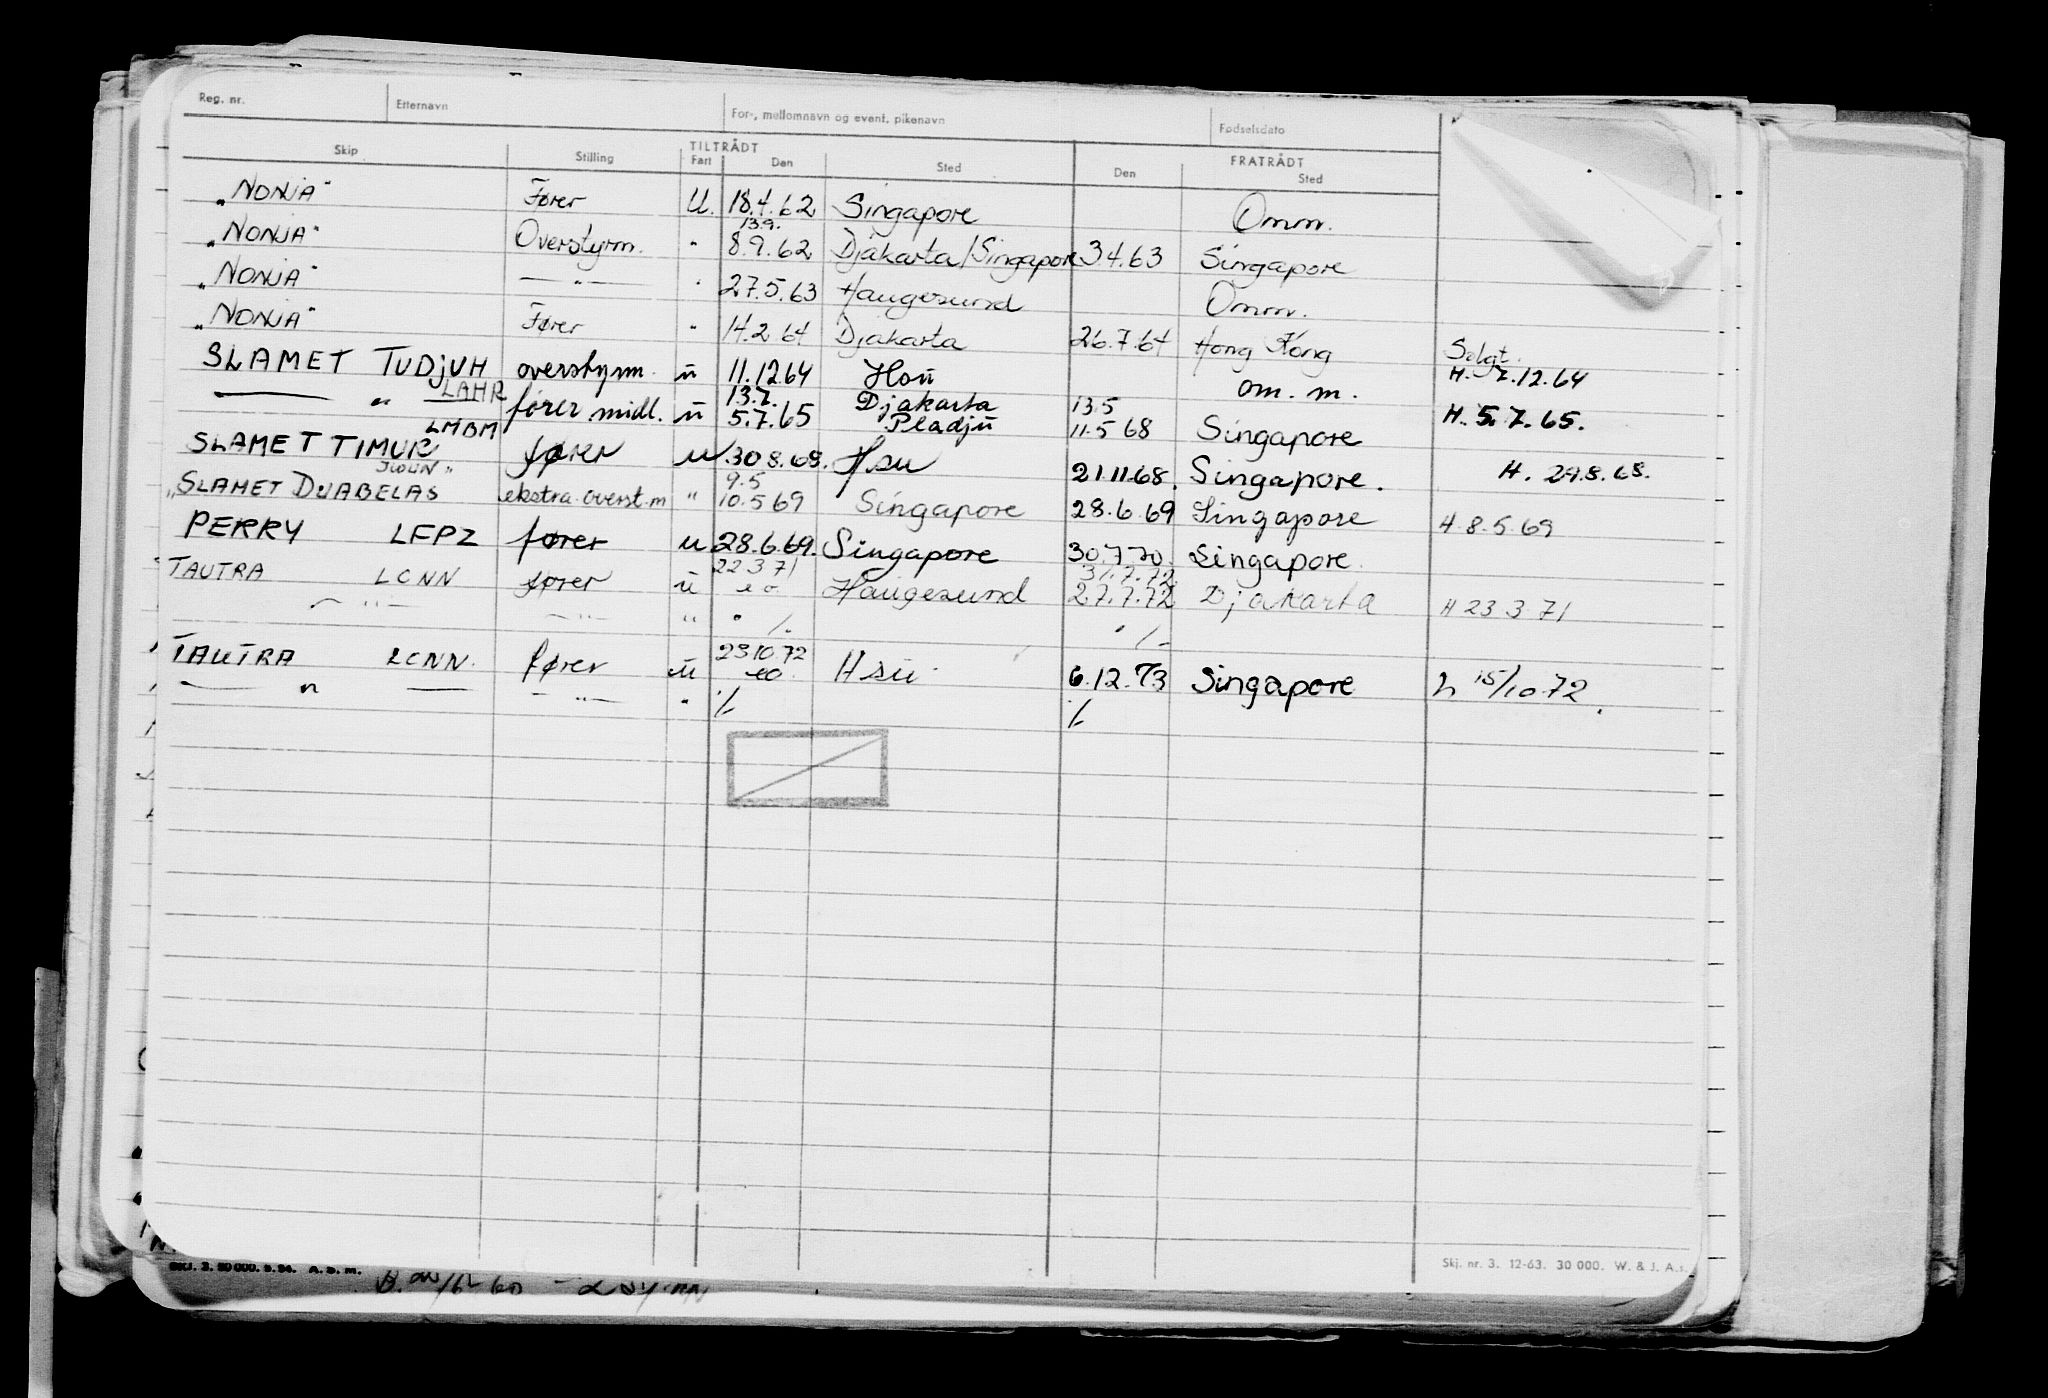 Reg. nr. Etternavn For-, mellomnavn og event. pikenavn Fødselsdato
TILTRÅDT FRATRÅDT
Skip Stilling Fart Den Sted Den Sted
"NONJA" Fører U. 18.4.62 Singapore Omm.
13.9.
"NONJA" Overstyrm. " 8.9.62 Djakarta/Singapore 3.4.63 Singapore
"NONJA" — " — " 27.5.63 Haugesund Omm.
"NONJA" Fører " 14.2.64 Djakarta 26.7.64 Hong Kong Solgt.
SLAMET TUDJUH overstyrm. u 11.12.64 Hou om. m. H. 7.12.64
LAHR 13.7. Djakarta 13.5
— " — fører midl. u 5.7.65 Pladju 11.5 68 Singapore H. 5.7.65.
LMBM
SLAMET TIMUR fører u 30.8.68. Hsu 21.11.68. Singapore. H. 29.8.68.
9.5
"SLAMET DJABELAS" ekstra overst.m " 10.5 69 Singapore 28.6.69 Singapore H 8.5.69
PERRY LFPZ fører u 28.6.69. Singapore 30.7.70. Singapore.
22 3 71 31.7.72
TAUTRA LCNN fører u eo Haugesund 27.7.72 Djakarta H 23 3 71
— " — — " — " ./. ./.
23.10.72
TAUTRA LCNN. fører u eo. Hsu 6.12.73 Singapore h 15/10.72
— " — — " — " ./. ./.
SKJ. 3. 50 000. 9.54. A. D. M. Skj. nr. 3. 12-63. 30 000. W. & J. A.s.